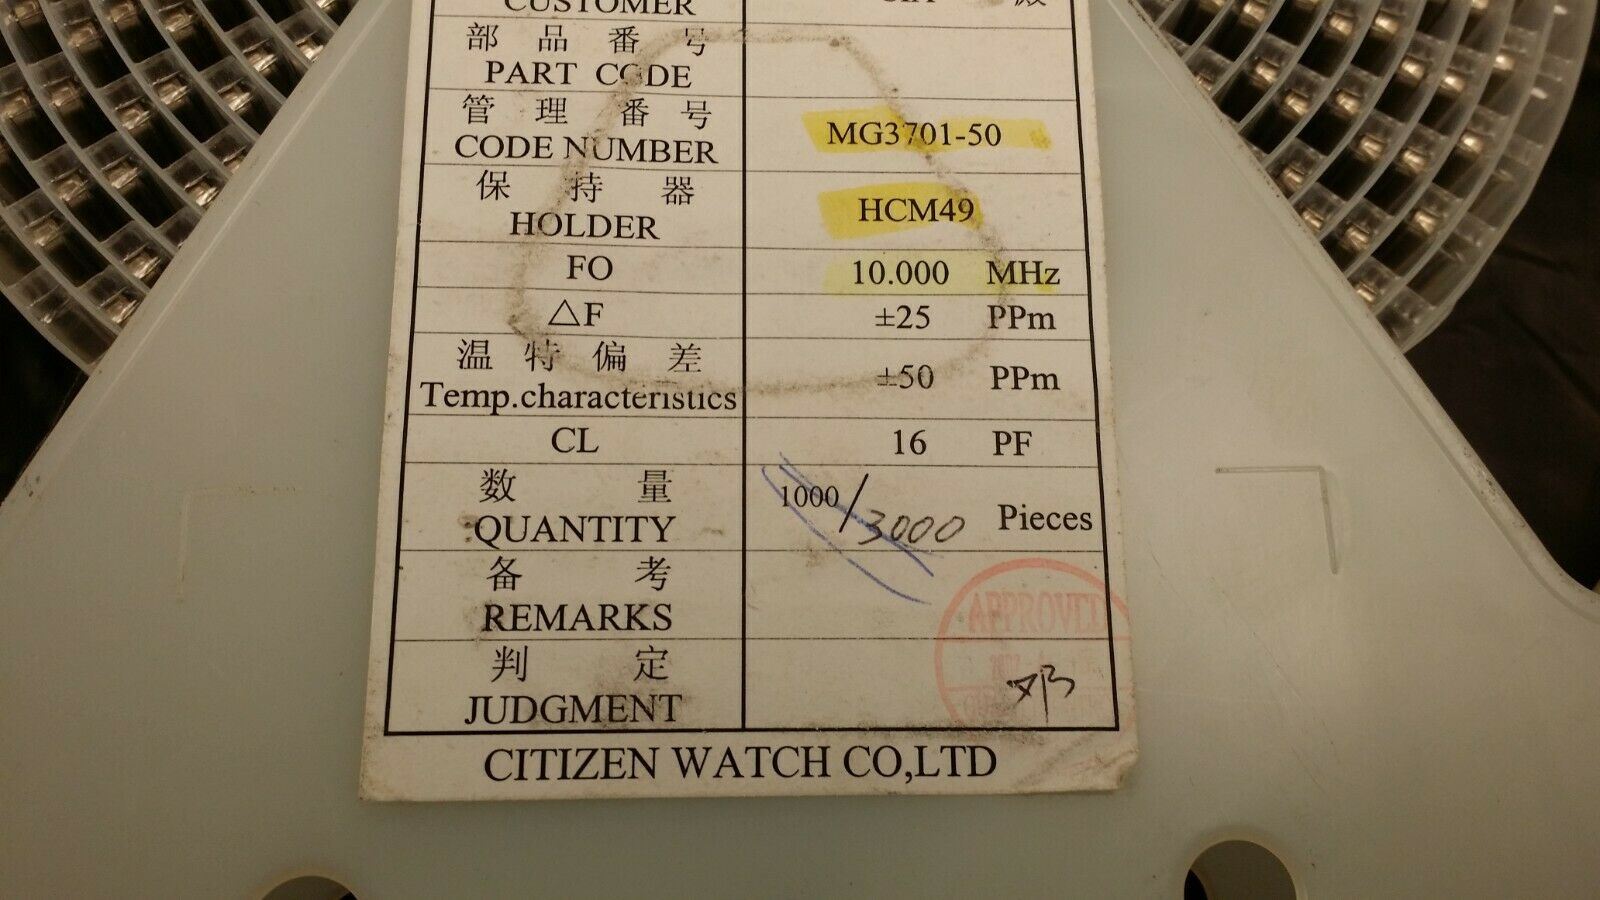 CUSTOMER
部品番号
PART CODE
管理番号
CODE NUMBER MG3701-50
保持器
HOLDER HCM49
FO 10.000 MHz
△F ±25 PPm
温特偏差
Temp.characteristics ±50 PPm
CL 16 PF
数量
QUANTITY 1000/3000 Pieces
备考
REMARKS
APPROVED
判定
JUDGMENT 邓
CITIZEN WATCH CO,LTD